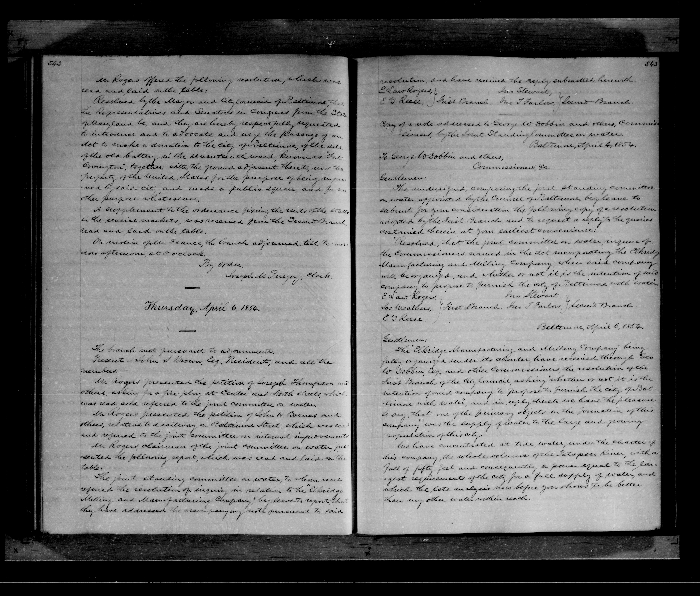 562
Mr Rogers offered the following resolution, which was
read and laid on the table:
Resolved by the Mayor and City Council of Baltimore, That
the Representatives and Senators in Congress from the State
of Maryland be and they are hereby respectfully requested
to introduce and to advocate and urge the passage of an
Act to make a donation to the City of Baltimore, of the site
of the old battery, in the seventeenth ward, known as "Fort
Covington", together with the ground adjacent thereto, now the
property of the United States for the purpose of being
used by said city and made a public square and for no
other purpose whatsoever.
A supplement to the ordinance fixing the rents of the stalls
in the several markets, was received from the Second Branch
read and laid on the table.
On motion of Mr Pearce, the branch adjourned till to-mor-
row afternoon at 5 o'clock.
By order,
Joseph H. Clerk.
Thursday, April 6, 1854.
The branch met pursuant to adjournment.
Present John T. Brown, Esq. President, and all the
members
Mr Rogers presented the petition of Joseph Thompson and
others, asking for a fire plug at Centre and North Streets, which
was read and referred to the joint committee on water.
Mr Rogers presented the petition of John G. and
others, relative to a railway on Baltimore Street which was read
and referred to the joint committee on internal improvements
Mr Rogers chairman of the joint committee on water, pre-
sented the following report, which was read and laid on the
table:
The joint standing committee on water to whom was
referred the resolution of inquiry in relation to the "Elkridge
Milling and Manufacturing Company" beg leave to report that
they have addressed the accompanying note annexed to said
563
resolution, and have received the reply submitted herewith.
E Law Rogers, Jno Stewart,
First Branch Jno T Farlow, Second Branch
E T Reese
Copy of a note addressed to George W Dobbin and others, Commis-
sioners, by the Joint Standing Committee on water
Baltimore, April 4, 1854.
To George W. Dobbin and others,
Commissioners &c.
Gentlemen:
The undersigned, composing the Joint Standing Committee
on water appointed by the Council of Baltimore, beg leave to
submit for your consideration the following copy of a resolution
adopted by the First Branch and to request a reply to the queries
contained therein at your earliest convenience:
Resolved, That the joint committee on water inquire of
the Commissioners named in the act incorporating the Elkridge
Manufacturing and Milling Company, when said company
was organized, and whether or not it is the intention of said
company to propose to furnish the city of Baltimore with water.
E Law Rogers Jno Stewart
First Branch Jno T Farlow Second Branch
E T Reese
Baltimore, April 6, 1854
Gentlemen:
The "Elkridge Manufacturing and Milling Company" being
duly organized under its charter have received through Geo
W Dobbin Esq. and other Commissioners the resolution of the
First Branch of the City Council asking whether or not it is the
intention of said company to propose to furnish the city of Bal-
timore with water, and in reply thereto we have the pleasure
to say, that one of the primary objects in the formation of this
company was the supply of water to the large and growing
population of this city.
We have concentrated at tide water, under the charter of
this company, the whole volume of the Patapsco River, with a
fall of fifty feet and consequently a power equal to the lar-
gest requirements of the city for a full supply of water, and
which the late analysis now before you shows to be better
than any other water within reach.